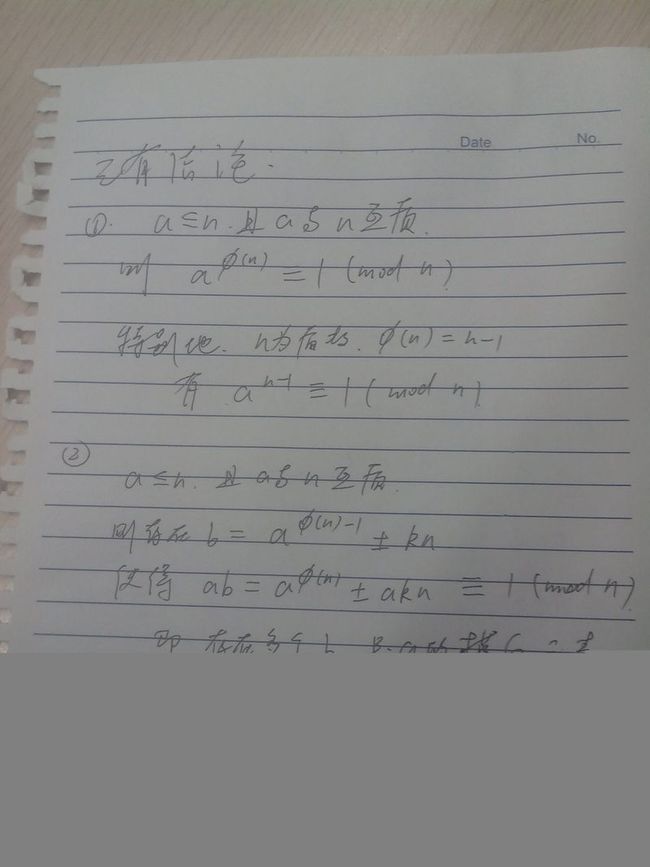 Date No.
有结论:
① a≤n.且a与n互质.
则 a^φ(n) ≡ 1 (mod n)
特别地. n为质数. φ(n)=n-1
有 a^n-1 ≡ 1 (mod n)
②
a≤n. 且a与n互质.
则存在 b = a^φ(n)-1 ± kn
使得 ab = a^φ(n) ± akn ≡ 1 (mod n)
即存在多个b